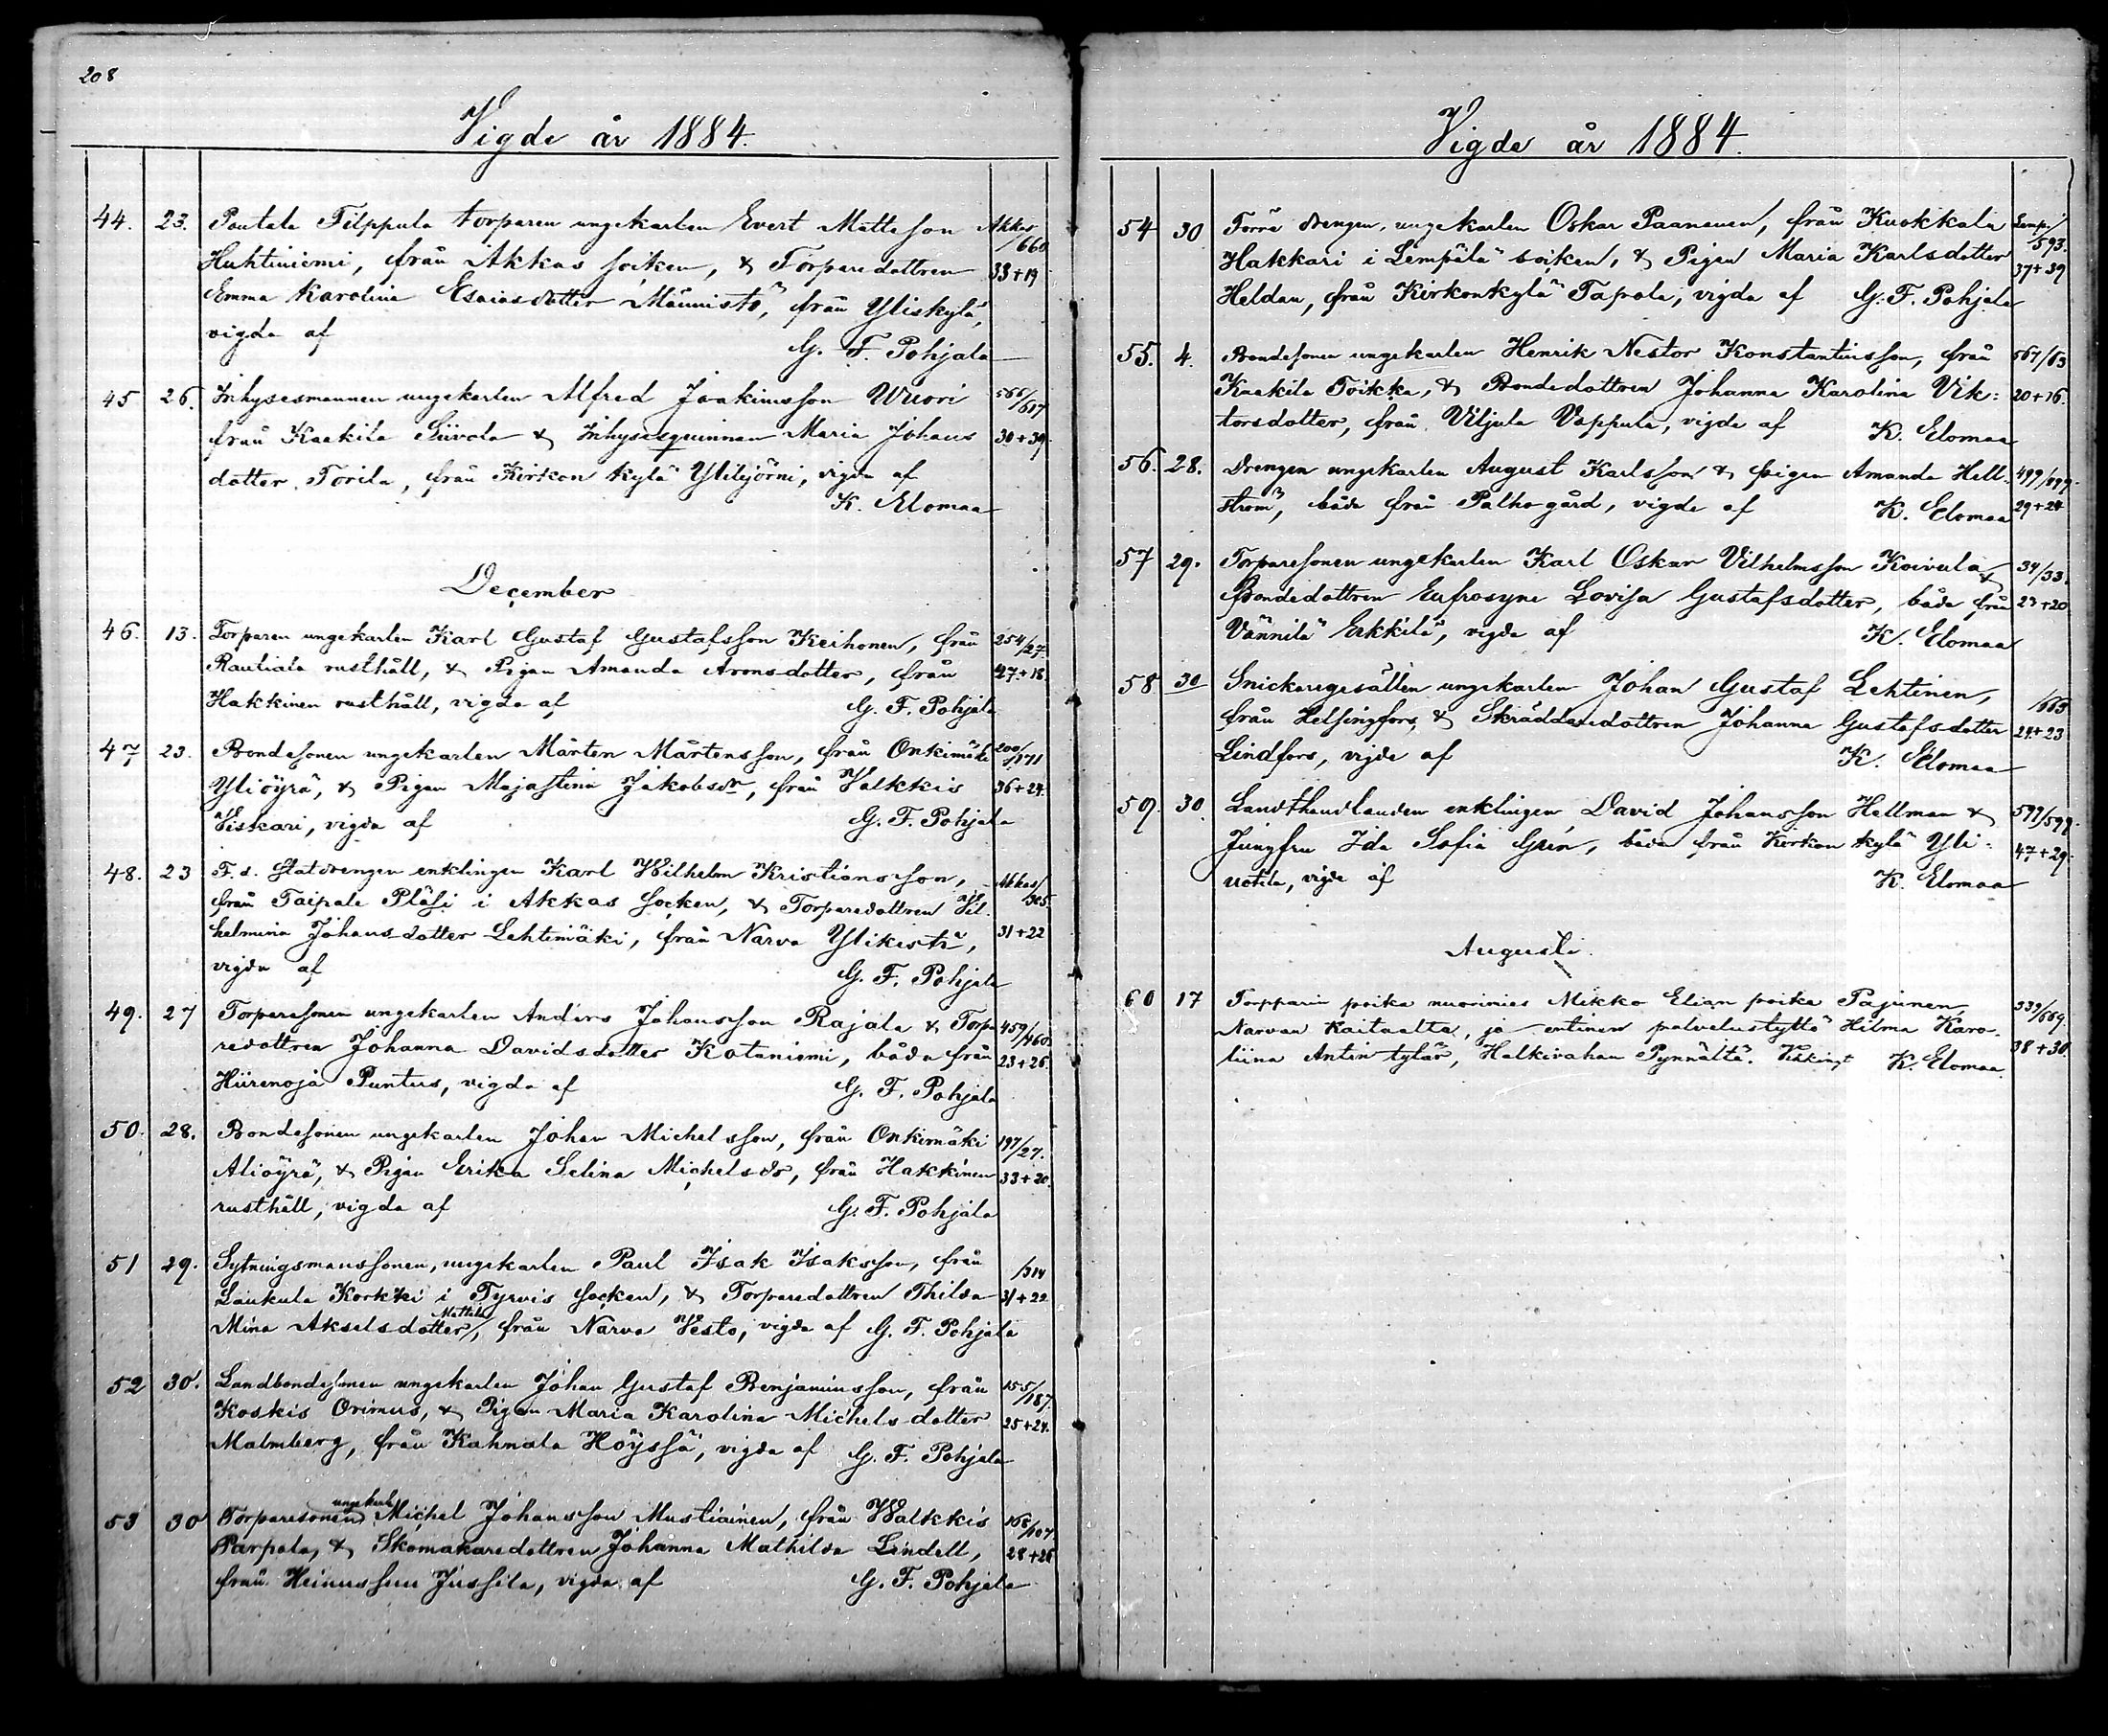 208
Vigde år 1884.
44. 23. Poutala Filppula torparen ungekarlen Evert Mattsson Akkas/660
Huhtiniemi, från Akkas socken, & Torparedottren 33+19
Emma Karolina Esaiasdotter Männistö, från Yliskylä,
vigda af G. F. Pohjala
45 26. Inhysesmannen ungekarlen Alfred Joakimsson Wuori 566/617
från Kaakila Siivola & Inhysesquinnan Maria Johans 30+39.
dotter Torila, från Kirkon kylä Ylilijörni, vigda af
K. Elomaa
December
46. 13. Torparen ungekarlen Karl Gustaf Gustafsson Keihonen, från 254/27.
Rautiala rusthåll, & Pigan Amanda Aronsdotter, från 27+18.
Hakkinen rusthåll, vigda af G. F. Pohjala
47 23. Bondesonen ungekarlen Mårten Mårtensson, från Onkimäki 200/171
Yliöyrä, & Pigan Majastina Jakobsdr, från Walkkis 36+24.
Viskari, vigda af G. F. Pohjala
48. 23 F. d. Statdrengen enklingen Karl Wilhelm Kristiansson, Akkas/305.
från Taipale Pläsi i Akkas socken, & Torparedottren Vil-
helmina Johansdotter Lehtimäki, från Narva Ylikistü, 31+22
vigda af G. F. Pohjala
49. 27 Torparesonen ungekarlen Anders Johansson Rajala & Torpa 459/460
redottren Johanna Davidsdotter Kataniemi, båda från 23+26.
Hiirenoja Puntus, vigda af G. F. Pohjala
50. 28. Bondesonen ungekarlen Johan Michelsson, från Onkimäki 197/27.
Alioyrä, & Pigan Erika Selina Michelsdr, från Hakkinen 33+20.
rusthåll, vigda af G. F. Pohjala
51 29. Sytningsmanssonen, ungekarlen Paul Isak Isaksson, från /314
Laukula Korkki i Tyrvis socken, & Torparedottren Thilda 31+22
Mattila
Mina Akselsdotter, från Narva Vesto, vigda af G. F. Pohjala
52 30. Landbondesonen ungekarlen Johan Gustaf Benjaminsson, från 155/187.
Koskis Orimus, & Pigan Maria Karolina Michelsdotter 25+24.
Malmberg, från Kahnala Höyssä, vigda af G. F. Pohjala
ungekarl
53 30 Torparesonen Michel Johansson Mustiainen, från Walkkis 168/107.
Parpala, & Skomakaredottren Johanna Mathilda Lindell, 28+26
från Heinussuu Jussila, vigda af G. F. Pohjala
Vigde år 1884.
54 30 Förra drengen, ungekarlen Oskar Paananen, från Kuokkala Lempä/593.
Hakkari i Lempälä soiken, & Pigan Maria Karlsdotter 37+39
Heldan, från Kirkonkylä Tapola, vigda af G. F. Pohjala
55. 4. Bondesonen ungekarlen Henrik Nestor Konstantinsson, från 567/63
Kaakila Toikka, & Bondedottren Johanna Karolina Vik- 20+16.
torsdotter, från Viljula Vappula, vigda af K. Elomaa
56. 28. Drengen ungekarlen August Karlsson & pigan Amanda Hell- 499/499.
ström, båda från Palho gård, vigda af K. Elomaa 29+24
57 29. Torparesonen ungekarlen Karl Oskar Vilhelmsson Koivula & 34/33.
Bondedottren Eufrosyne Lovisa Gustafsdotter, båda från 23+20
Vännilä Erkkilä, vigda af K. Elomaa
58 30 Snickaregesällen ungekarlen Johan Gustaf Lehtinen, /663
från Helsingfors, & Skräddaredottren Johanna Gustafsdotter 24+23
Lindfors, vigda af K. Elomaa
59. 30. Landthandlanden enklingen David Johansson Hellman & 599/599.
Jungfru Ida Sofia Grén, båda från Kirkon kylä Yli- 47+29.
uotila, vigda af K. Elomaa
Augusti.
60 17 Torpparin poika nuorimies Mikko Elian poika Pajunen, 339/669.
Narvan Kaitaalta, ja entinen palvelustyttö Hilma Karo-
liina Antin tytär, Halkivahan Pynnältä. Vihkinyt K. Elomaa. 38+30.